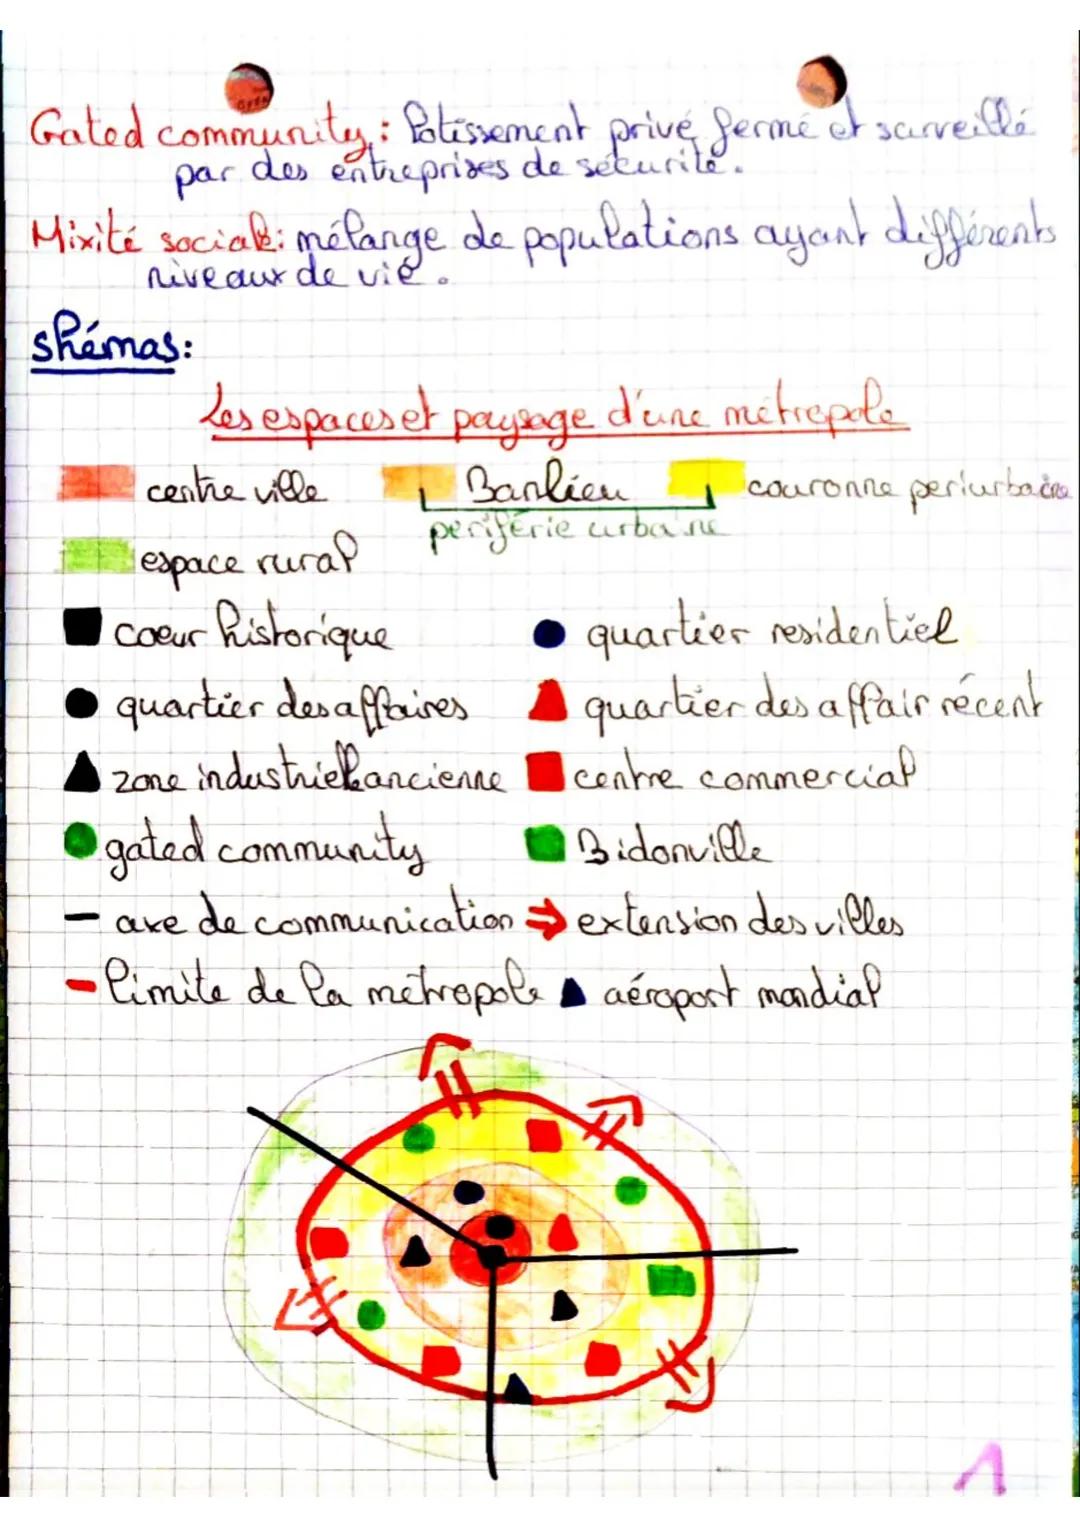 Gated community : lotissement privé fermé et surveillé
par des entreprises de sécurité.
Mixité sociale : mélange de populations ayant différents
niveaux de vie.
shémas:
Les espaces et paysage d'une métropole
centre ville Banlieu couronne periurbaine
periférie urbaine
espace rural
coeur historique quartier residentiel
quartier des affaires quartier des affair récent
zone industriel ancienne centre commercial
gated community Bidonville
axe de communication extension des villes
limite de la métropole aéroport mondial
1